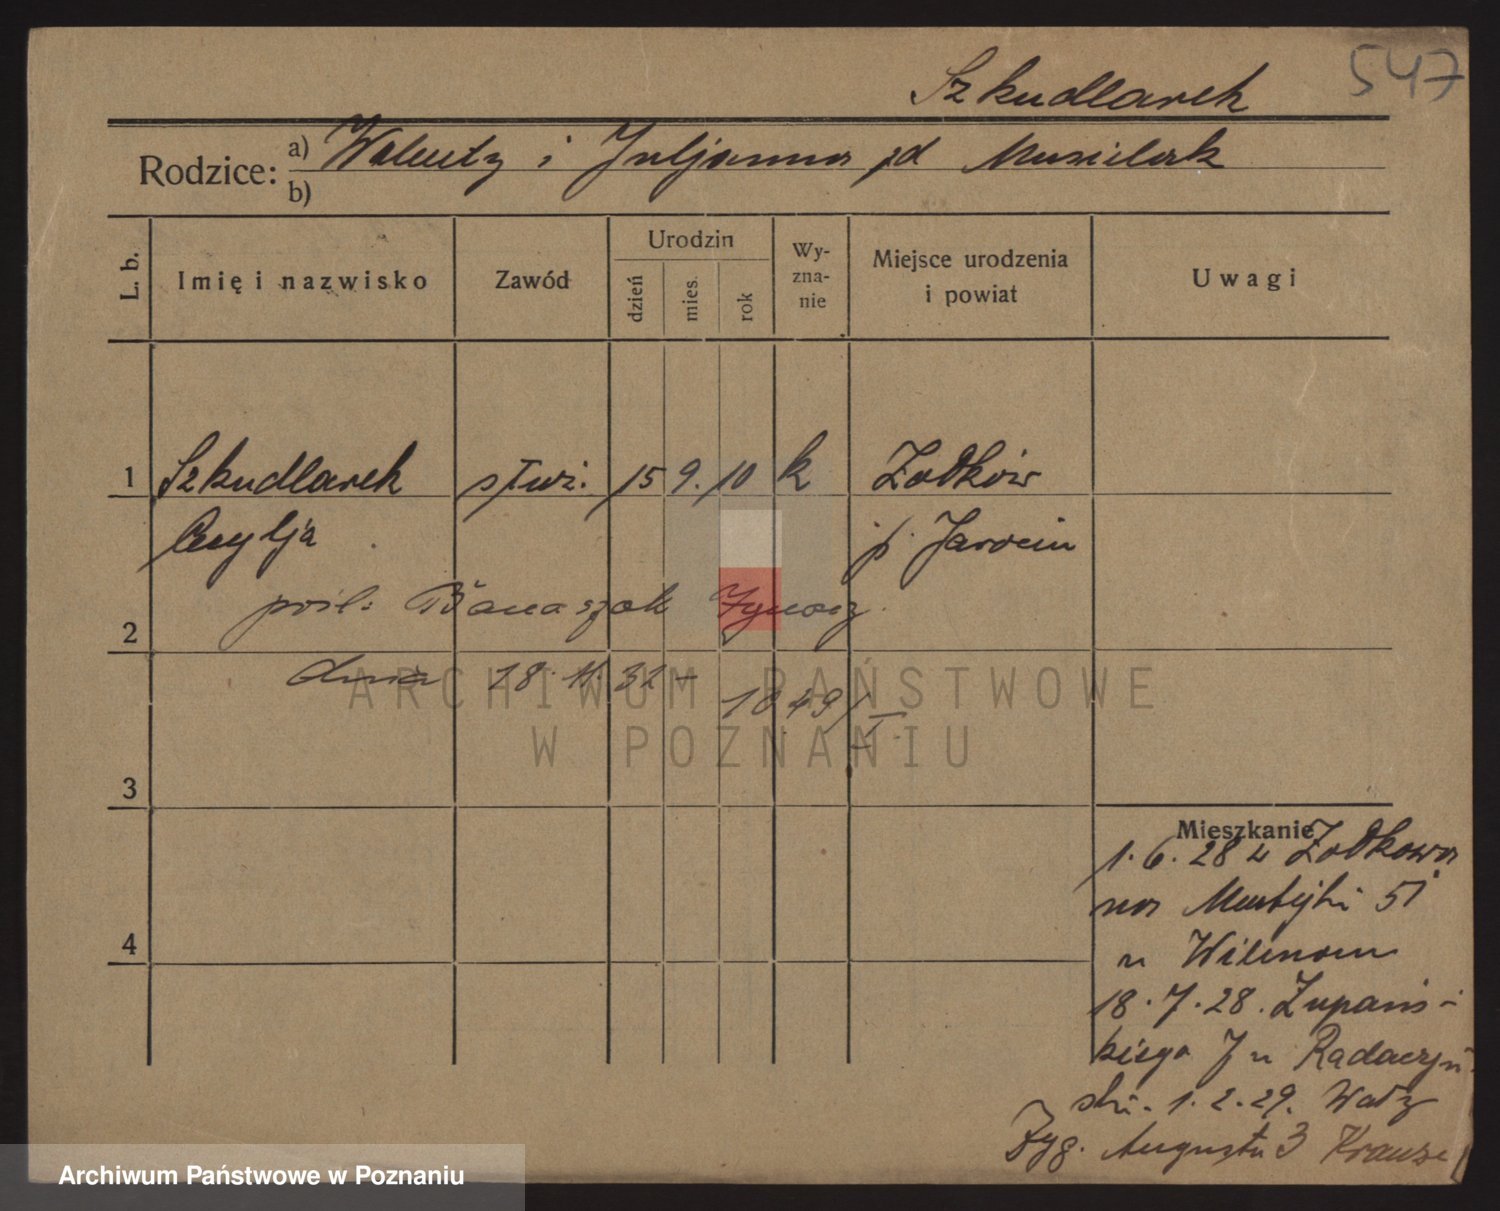 547
Szkudlarek
Rodzice:
a) Walenty i Juljanna zd Musielak
b)
L. b.
Imię i nazwisko
Zawód
Urodzin
dzień
mies.
rok
Wy-
zna-
nie
Miejsce urodzenia
i powiat
Uwagi
1 Szkudlarek służ. 15 9. 10 k Żółków
Cecylja p. Jarocin
2 Banaszak Ignacy
dnia 18. 11. 32 -
1049/I
3
4
Mieszkanie
1. 6. 28 z Żółkowa
na Matejki 51
u
18. 7. 28. Żupańs-
kiego 7 u Radaczyń
ski. 1. 2. 29. Wały
Zyg. Augusta 3 Krause
ARCHIWUM PAŃSTWOWE
W POZNANIU
Archiwum Państwowe w Poznaniu